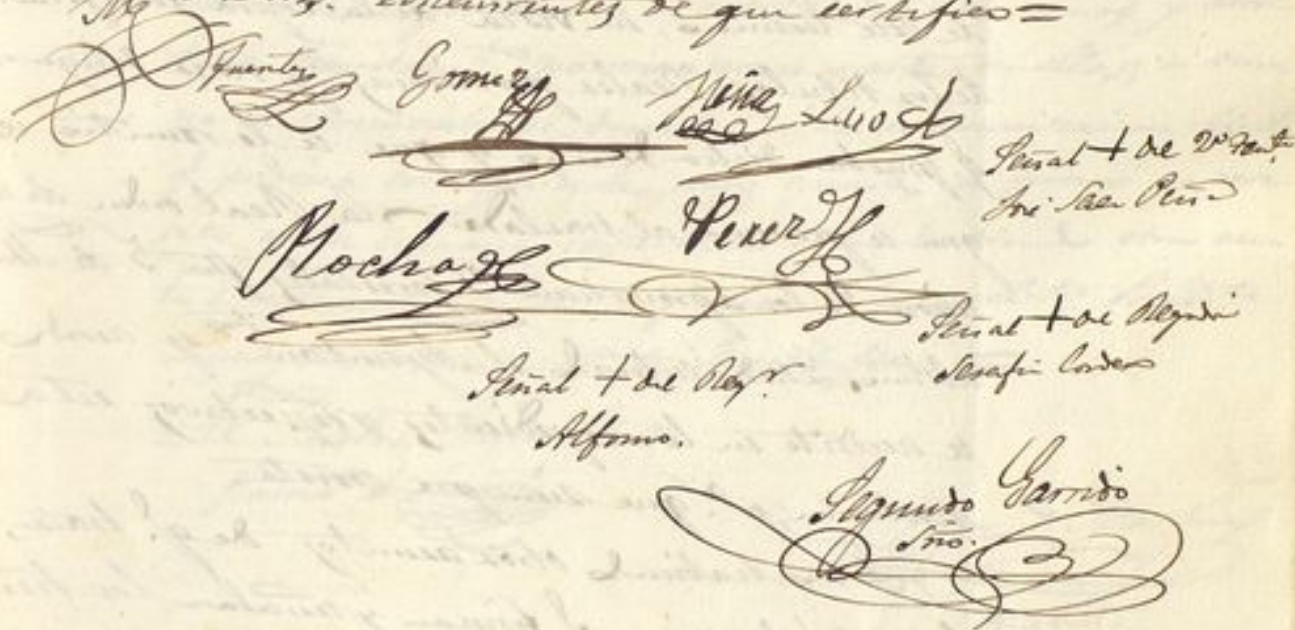 concurrentes de que certifico=
Fuentes Gomez Peña
Señal + de 2º
José Saen Peña
Rocha Perez
Señal + de Regidor
Serafin Cordero
Señal + del Regr.
Alfonso.
Segundo Garrido
Srio.